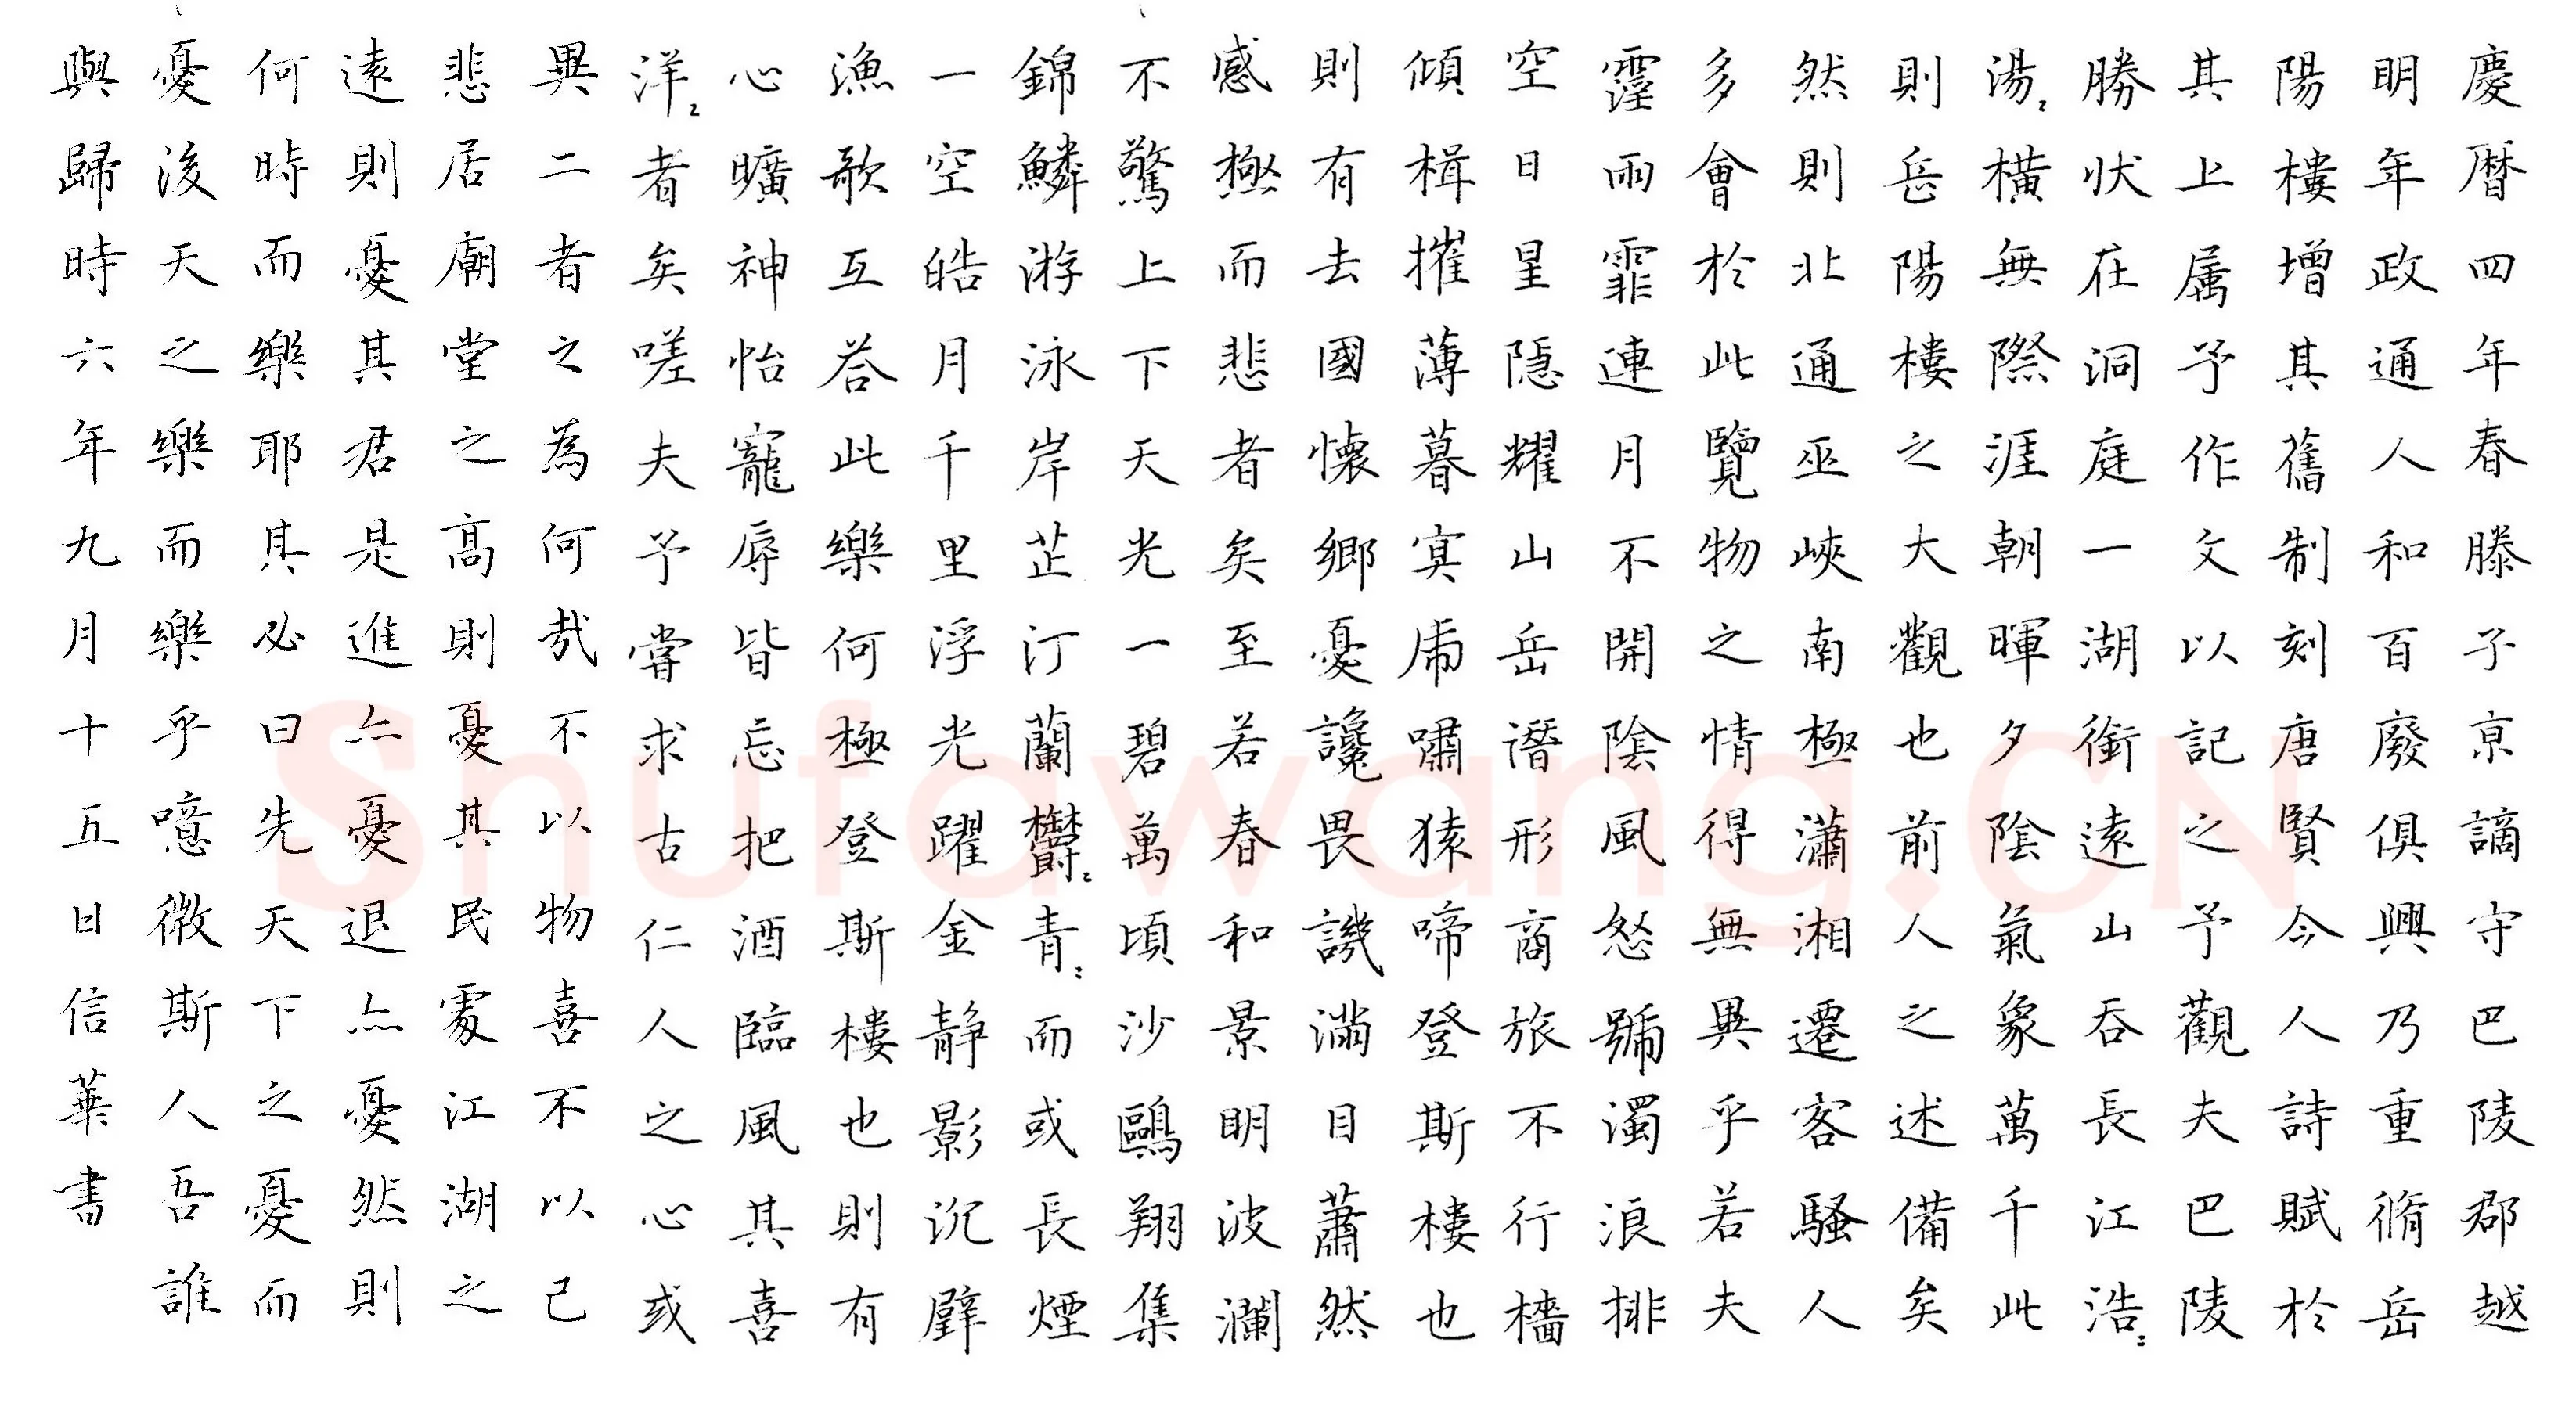 慶暦四年春滕子京謫守巴陵郡越
明年政通人和百廢俱興乃重脩岳
陽樓增其舊制刻唐賢今人詩賦於
其上属予作文以記之予觀夫巴陵
勝狀在洞庭一湖銜遠山吞長江浩々
湯々橫無際涯朝暉夕陰氣象萬千此
則岳陽樓之大觀也前人之述備矣
然則北通巫峽南極瀟湘遷客騷人
多會於此覽物之情得無異乎若夫
霪雨霏連月不開陰風怒號濁浪排
空日星隱耀山岳潛形商旅不行檣
傾楫摧薄暮冥虎嘯猿啼登斯樓也
則有去國懷鄉憂讒畏譏滿目蕭然
感極而悲者矣至若春和景明波瀾
不驚上下天光一碧萬頃沙鷗翔集
錦鱗游泳岸芷汀蘭鬱々青々而或長煙
一空皓月千里浮光躍金静影沉璧
漁歌互答此樂何極登斯樓也則有
心曠神怡寵辱皆忘把酒臨風其喜
洋々者矣嗟夫予嘗求古仁人之心或
異二者之為何哉不以物喜不以己
悲居廟堂之高則憂其民處江湖之
遠則憂其君是進亦憂退亦憂然則
何時而樂耶其必曰先天下之憂而
憂後天之樂而樂乎噫微斯人吾誰
與歸時六年九月十五日信華書
Shufawang.CN